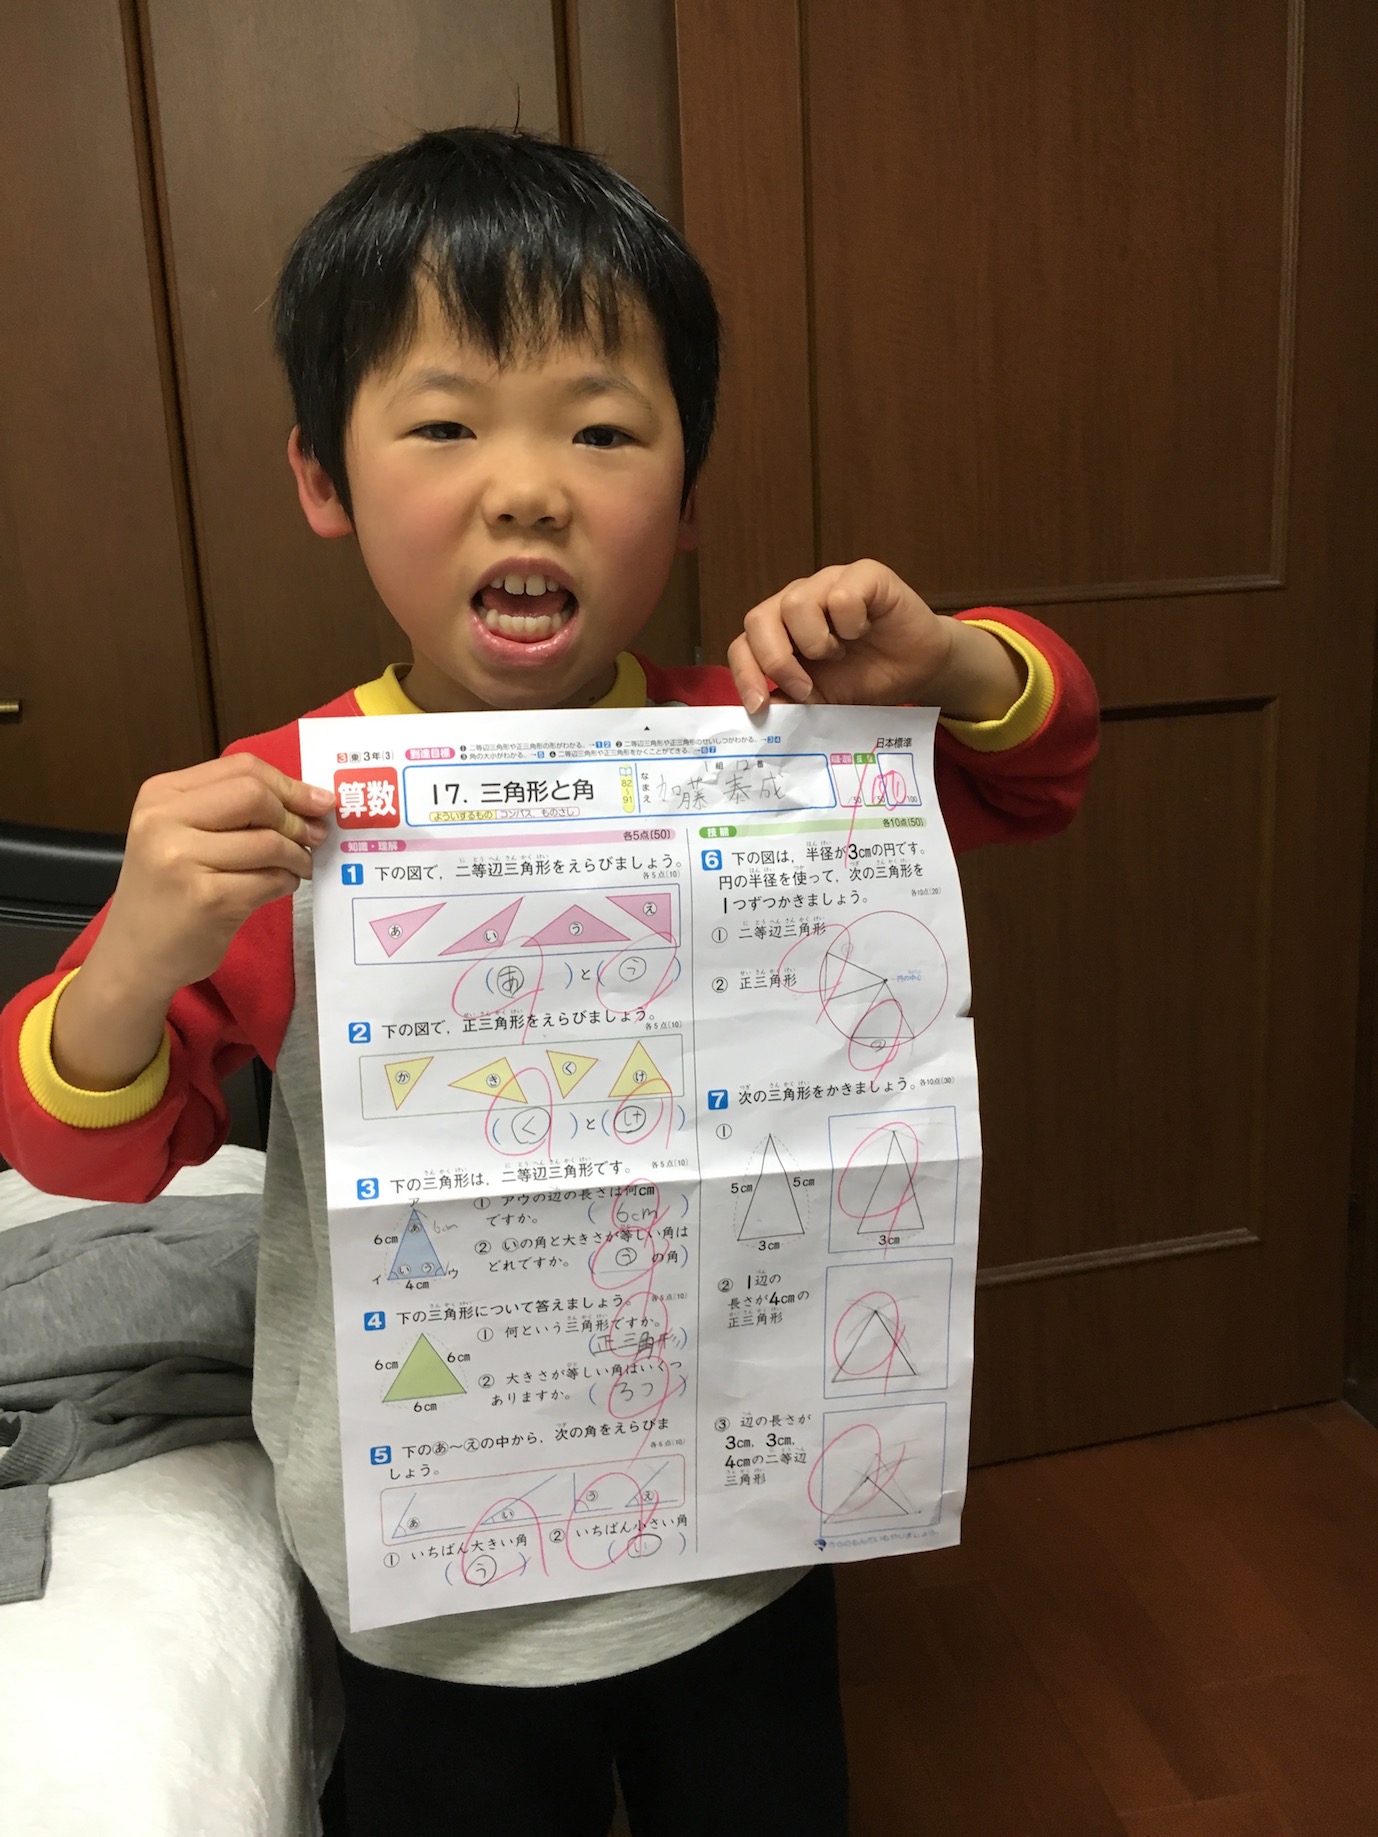 3 東 3年(3) 到達目標 ① 二等辺三角形や正三角形の形がわかる。→1 2 ② 二等辺三角形や正三角形のせいしつがわかる。→3 4
③ 角の大小がわかる。→5 ④ 二等辺三角形や正三角形をかくことができる。→6 7
日本標準
算数
17. 三角形と角
よういするもの コンパス、ものさし
82〜91
なまえ
1組 12番
加藤 泰成
100
50 50 100
知識・理解 各5点(50)
1 下の図で，二等辺三角形をえらびましょう。
各5点(10)
あ い う え
(あ)と(う)
2 下の図で，正三角形をえらびましょう。
各5点(10)
か き く け
(く)と(け)
3 下の三角形は，二等辺三角形です。
各5点(10)
ア
あ
6cm 6cm
い う
イ ウ
4cm
① アウの辺の長さは何cm
ですか。 (6cm)
② いの角と大きさが等しい角は
どれですか。 (う の角)
4 下の三角形について答えましょう。
各5点(10)
6cm 6cm
6cm
① 何という三角形ですか。
(正三角形)
② 大きさが等しい角はいくつ
ありますか。 (3つ)
5 下のあ〜えの中から，次の角をえらびま
しょう。
各5点(10)
あ い う え
① いちばん大きい角 ② いちばん小さい角
(う) (い)
技能 各10点(50)
6 下の図は，半径が3cmの円です。
円の半径を使って，次の三角形を
1つずつかきましょう。
各10点(20)
① 二等辺三角形
② 正三角形
円の中心
①
②
7 次の三角形をかきましょう。
各10点(30)
①
5cm 5cm
3cm
3cm
② 1辺の
長さが4cmの
正三角形
③ 辺の長さが
3cm，3cm，
4cmの二等辺
三角形